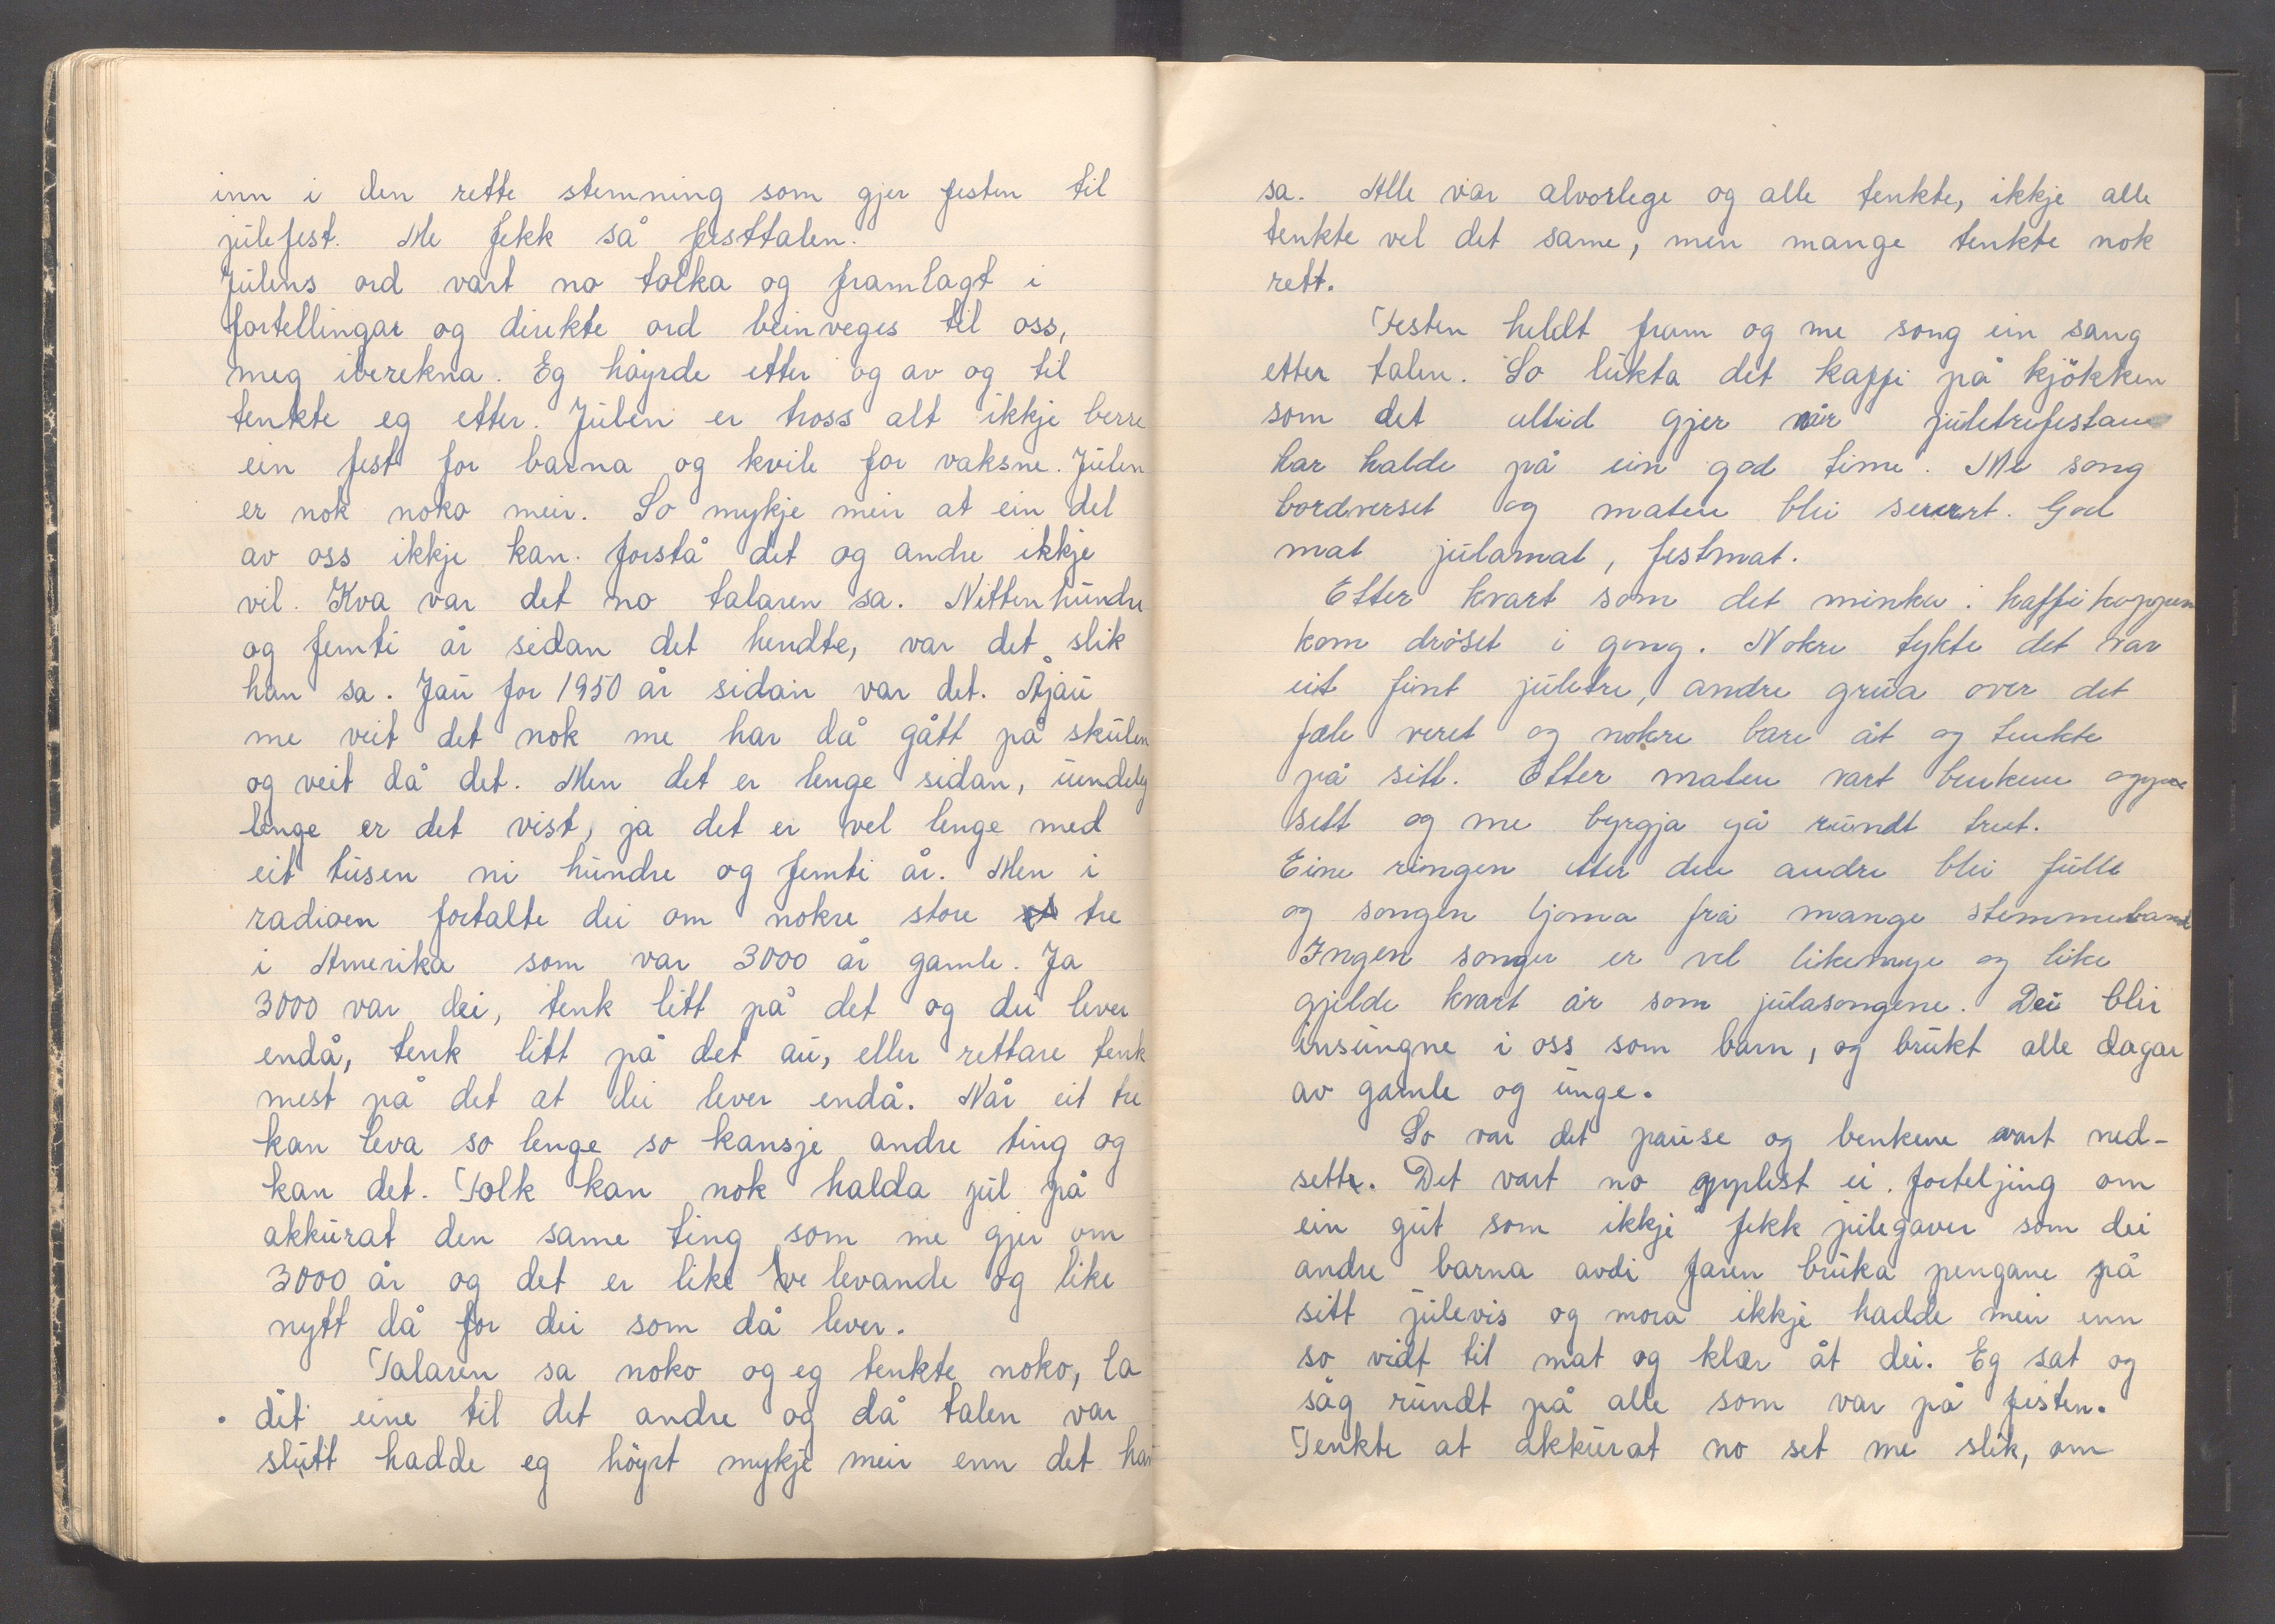 inn i den rette stemning som gjer festen til
julefest. Me fekk så festtalen.
Julens ord vart no tolka og framlagt i
fortellingar og direkte ord beinveges til oss,
meg iberekna. Eg høyrde etter og av og til
tenkte eg etter. Julen er tross alt ikkje berre
ein fest for barna og kvile for vaksne. Julen
er nok noko meir. So mykje meir at ein del
av oss ikkje kan forstå det og andre ikkje
vil. Kva var det no talaren sa. Nittenhundre
og femti år sidan det hendte, var det slik
han sa. Jau for 1950 år sidan var det. Åjau
me veit det nok me har då gått på skulen
og veit då det. Men det er lenge sidan, uendelig
lenge er det vist, ja det er vel lenge med
eit tusen ni hundre og femti år. Men i
radioen fortalte dei om nokre store tre
i Amerika som var 3000 år gamle. Ja
3000 var dei, tenk litt på det og dei lever
endå, tenk litt på det au, eller rettare tenk
mest på det at dei lever endå. Når eit tre
kan leva so lenge so kansje andre ting og
kan det. Folk kan nok halda jul på
akkurat den same ting som me gjer om
3000 år og det er like levande og like
nytt då for dei som då lever.
Talaren sa noko og eg tenkte noko, la
det eine til det andre og då talen var
slutt hadde eg höyrt mykje meir enn det han
sa. Alle var alvorlege og alle tenkte, ikkje alle
tenkte vel det same, men mange tenkte nok
rett.
Festen heldt fram og me song ein sang
etter talen. So lukta det kaffi på kjökken
som det alltid gjer når juletrefestane
har halde på ein god time. Me song
bordverset og maten blei servert. God
mat julamat, festmat.
Etter kvart som det minka i kaffikoppen
kom dröset i gong. Nokre tykte det var
eit fint juletre, andre grua over det
fæle veret og nokre bare åt og tenkte
på sitt. Etter maten vart benkene oppe
sett og me byrgja gå rundt treet.
Eine ringen etter den andre blei fulle
og songen ljoma frå mange stemmeband
Ingen songer er vel likemye og like
gjelde kvart år som julasongene. Dei blir
insungne i oss som barn, og brukt alle dagar
av gamle og unge.
So var det pause og benkene vart ned-
sette. Det vart no opplest ei forteljing om
ein gut som ikkje fekk julegaver som dei
andre barna avdi faren bruka pengane på
sitt julevis og mora ikkje hadde meir enn
so vidt til mat og klær åt dei. Eg sat og
såg rundt på alle som var på festen.
Tenkte at akkurat no set me slik, om